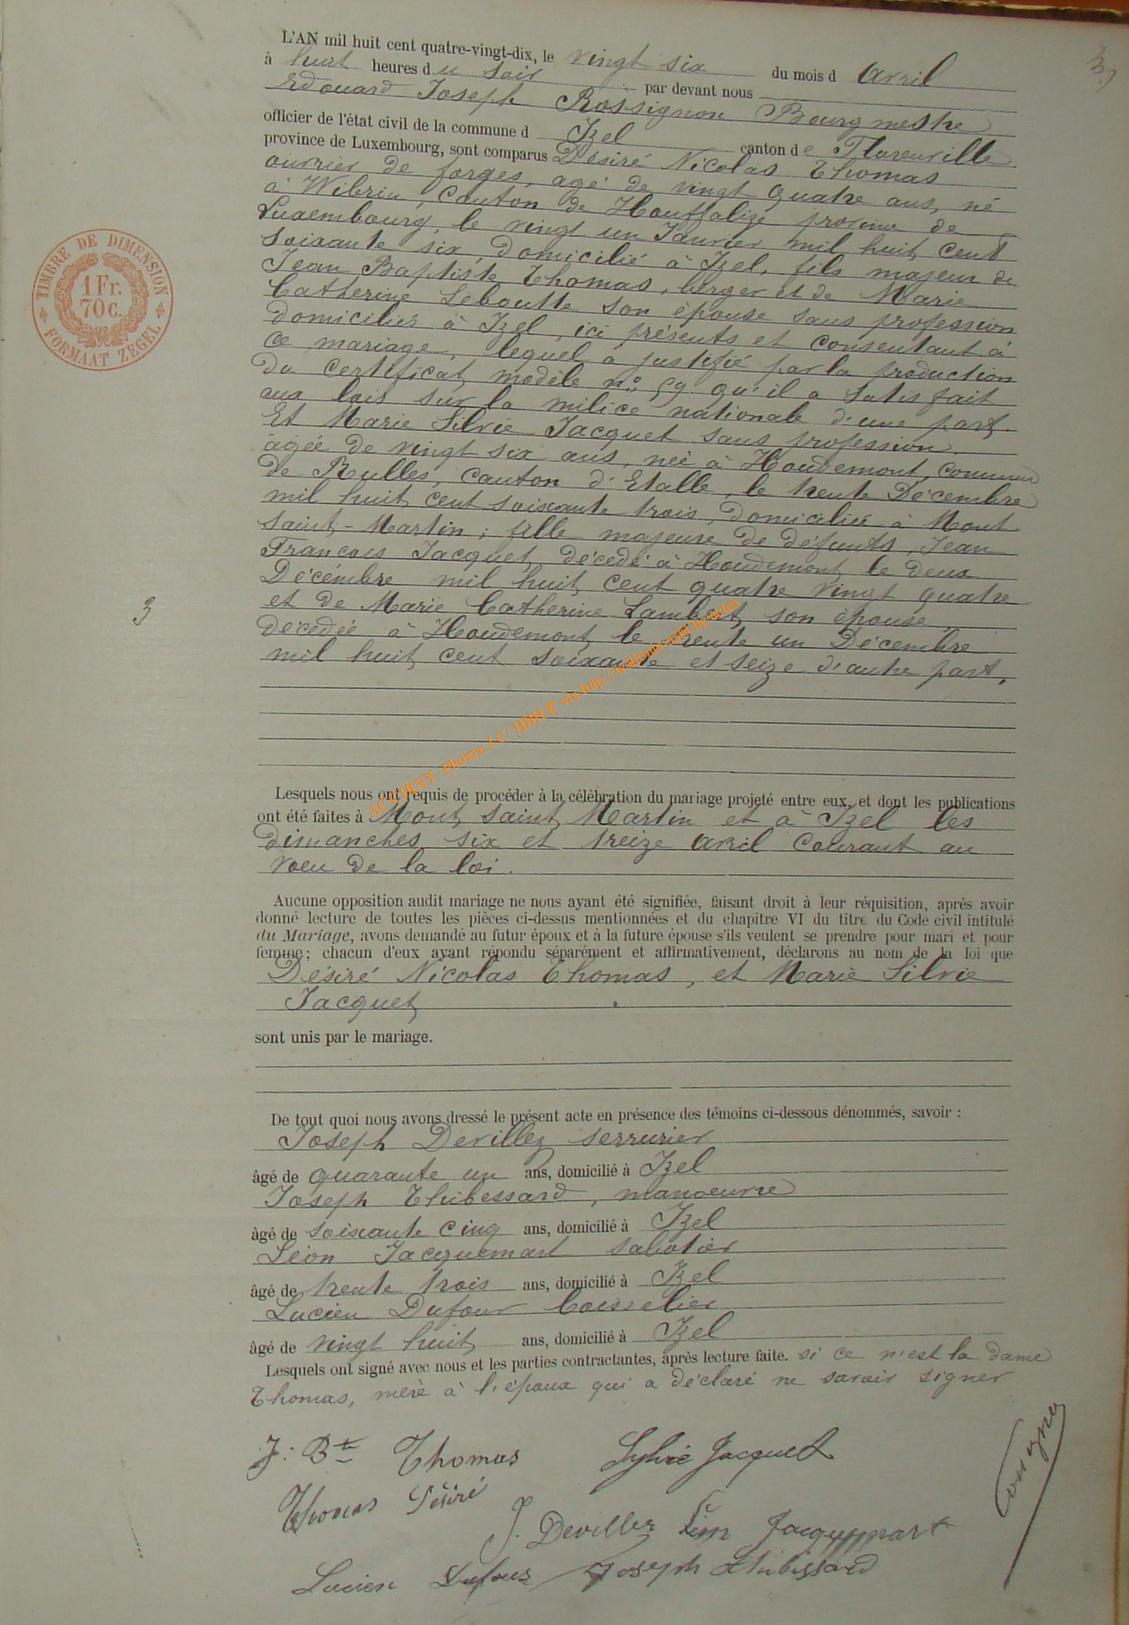 L'AN mil huit cent quatre-vingt-dix, le vingt six du mois d Avril
à huit heures du soir par devant nous
Edouard Joseph Rossignon Bourgmestre
officier de l'état civil de la commune d Izel canton de Florenville
province de Luxembourg, sont comparus Désiré Nicolas Thomas
ouvrier de forges, agé de vingt quatre ans, né
à Wibrin, Canton de Houffalize province de
Luxembourg, le vingt un Janvier mil huit cent
soixante six, domicilié à Izel, fils majeur de
Jean Baptiste Thomas, berger et de Marie
Catherine Leboutte son épouse sans profession
domiciliés à Izel, ici présents et consentant à
ce mariage, lequel a justifié par la production
du certificat modèle n° 59 qu'il a satisfait
aux lois sur la milice nationale d'une part.
Et Marie Silvie Jacquet sans profession
agée de vingt six ans, née à Houdemont, commune
de Rulles, canton d'Etalle, le trente Décembre
mil huit cent soixante trois, domiciliée à Mont
Saint-Martin; fille majeure de défunts, Jean
Francois Jacquet, décédé à Houdemont le deux
Décembre mil huit cent quatre vingt quatre
et de Marie Catherine Lambert, son épouse
décédée à Houdemont le trente un Décembre
mil huit cent soixante et seize d'autre part.
Lesquels nous ont requis de procéder à la célébration du mariage projeté entre eux, et dont les publications
ont été faites à Mont Saint Martin et à Izel les
dimanches six et treize Avril courant au
voeu de la loi.
Aucune opposition audit mariage ne nous ayant été signifiée, faisant droit à leur réquisition, après avoir
donné lecture de toutes les pièces ci-dessus mentionnées et du chapitre VI du titre du Code civil intitulé
du Mariage, avons demandé au futur époux et à la future épouse s'ils veulent se prendre pour mari et pour
femme; chacun d'eux ayant répondu séparément et affirmativement, déclarons au nom de la loi que
Désiré Nicolas Thomas, et Marie Silvie
Jacquet
sont unis par le mariage.
De tout quoi nous avons dressé le présent acte en présence des témoins ci-dessous dénommés, savoir :
Joseph Devillez serrurier
âgé de quarante un ans, domicilié à Izel
Joseph Thibessard, manoeuvre
âgé de soixante cinq ans, domicilié à Izel
Léon Jacquemart sabotier
âgé de trente trois ans, domicilié à Izel
Lucien Dufour
âgé de vingt huit ans, domicilié à Izel
Lesquels ont signé avec nous et les parties contractantes, après lecture faite. si ce n'est la dame
Thomas, mère à l'époux qui a déclaré ne savoir signer
J. Bte Thomas Sylvie Jacquet
Thomas Désiré
J. Devillez Léon Jacquemart
Lucien Dufour Joseph Thibessard
TIMBRE DE DIMENSION
1 Fr.
70 c.
FORMAAT ZEGEL
3
3